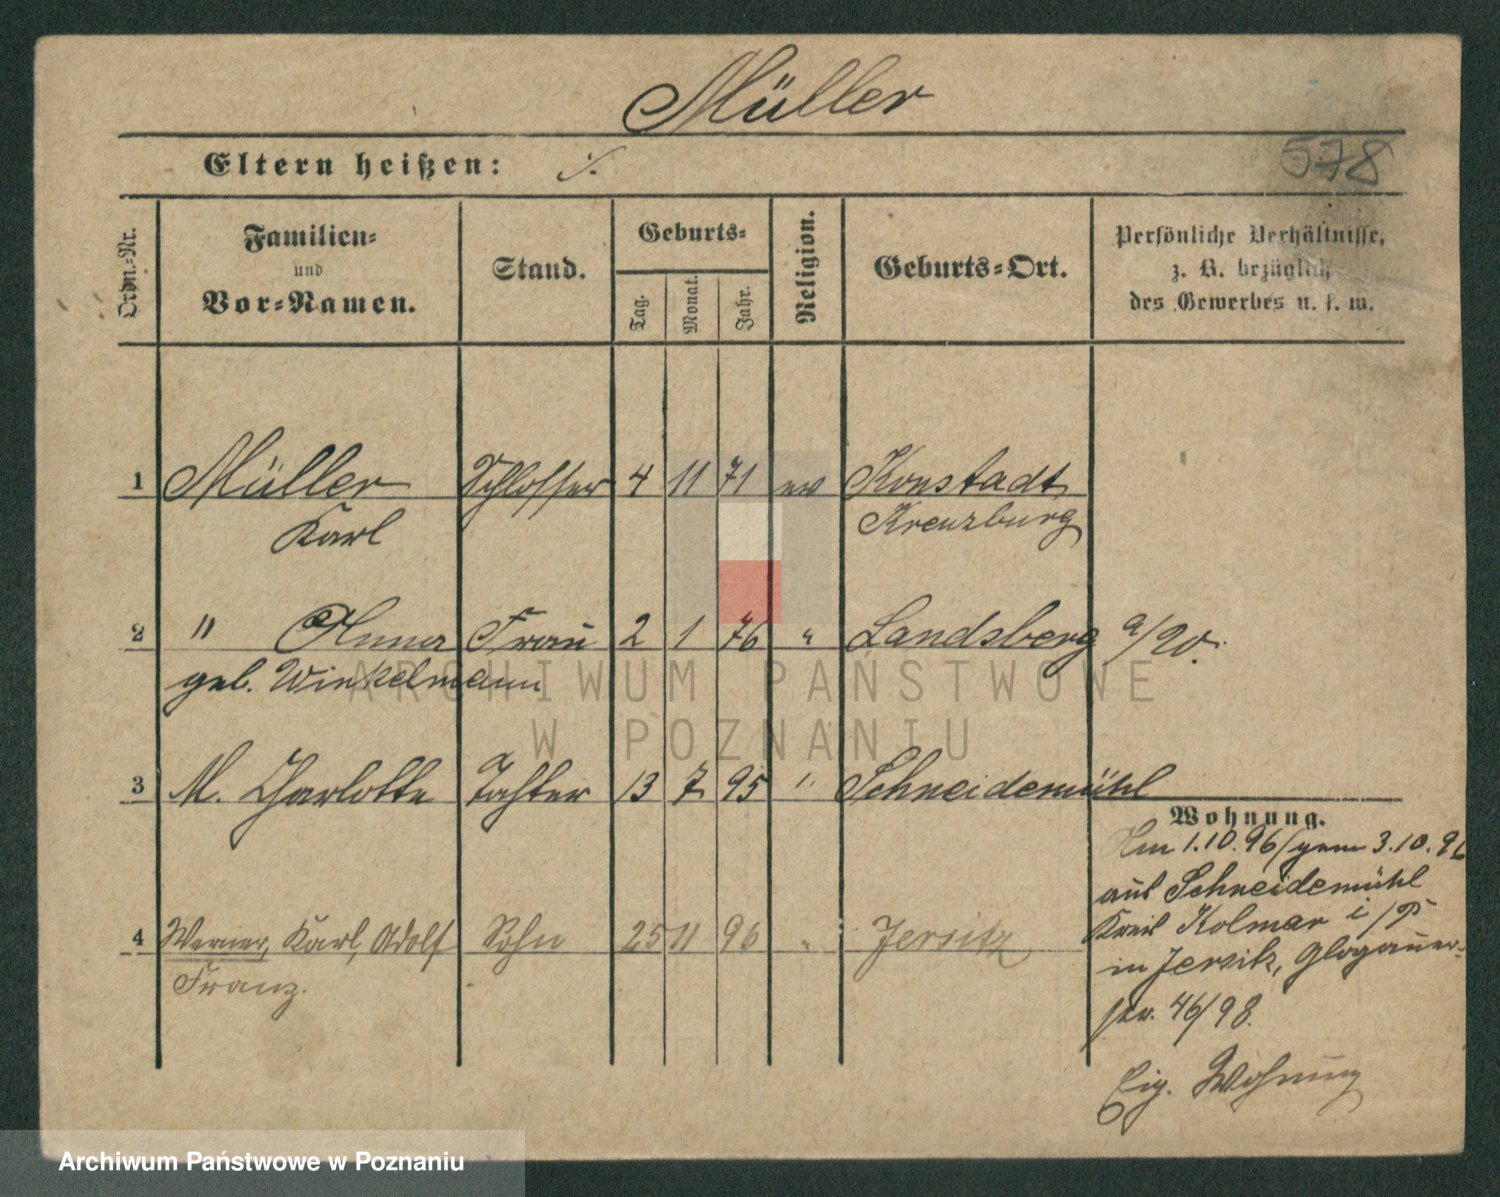 Müller
Eltern heißen: ./.
578
Ordn.-Nr.
Familien-
und
Vor-Namen.
Stand.
Geburts-
Tag.
Monat.
Jahr.
Religion.
Geburts-Ort.
Persönliche Verhältnisse,
z. B. bezüglich
des Gewerbes u. s. w.
1 Müller Schlosser 4 11 71 ev Konstadt
Karl Kreuzburg
2 " Anna Frau 2 1 76 " Landsberg a/W.
geb. Winkelmann
ARCHIWUM PAŃSTWOWE
W POZNANIU
3 M. Charlotte Tochter 13 7 95 " Schneidemühl
Wohnung.
Am 1.10.96/gem 3.10.96
aus Schneidemühl
Kreis Kolmar i/P
4 Werner, Karl, Adolf Sohn 25 11 96 " Jersitz
Franz.
in Jersitz, Glogauer-
str. 46/98.
Eig. Wohnung
Archiwum Państwowe w Poznaniu